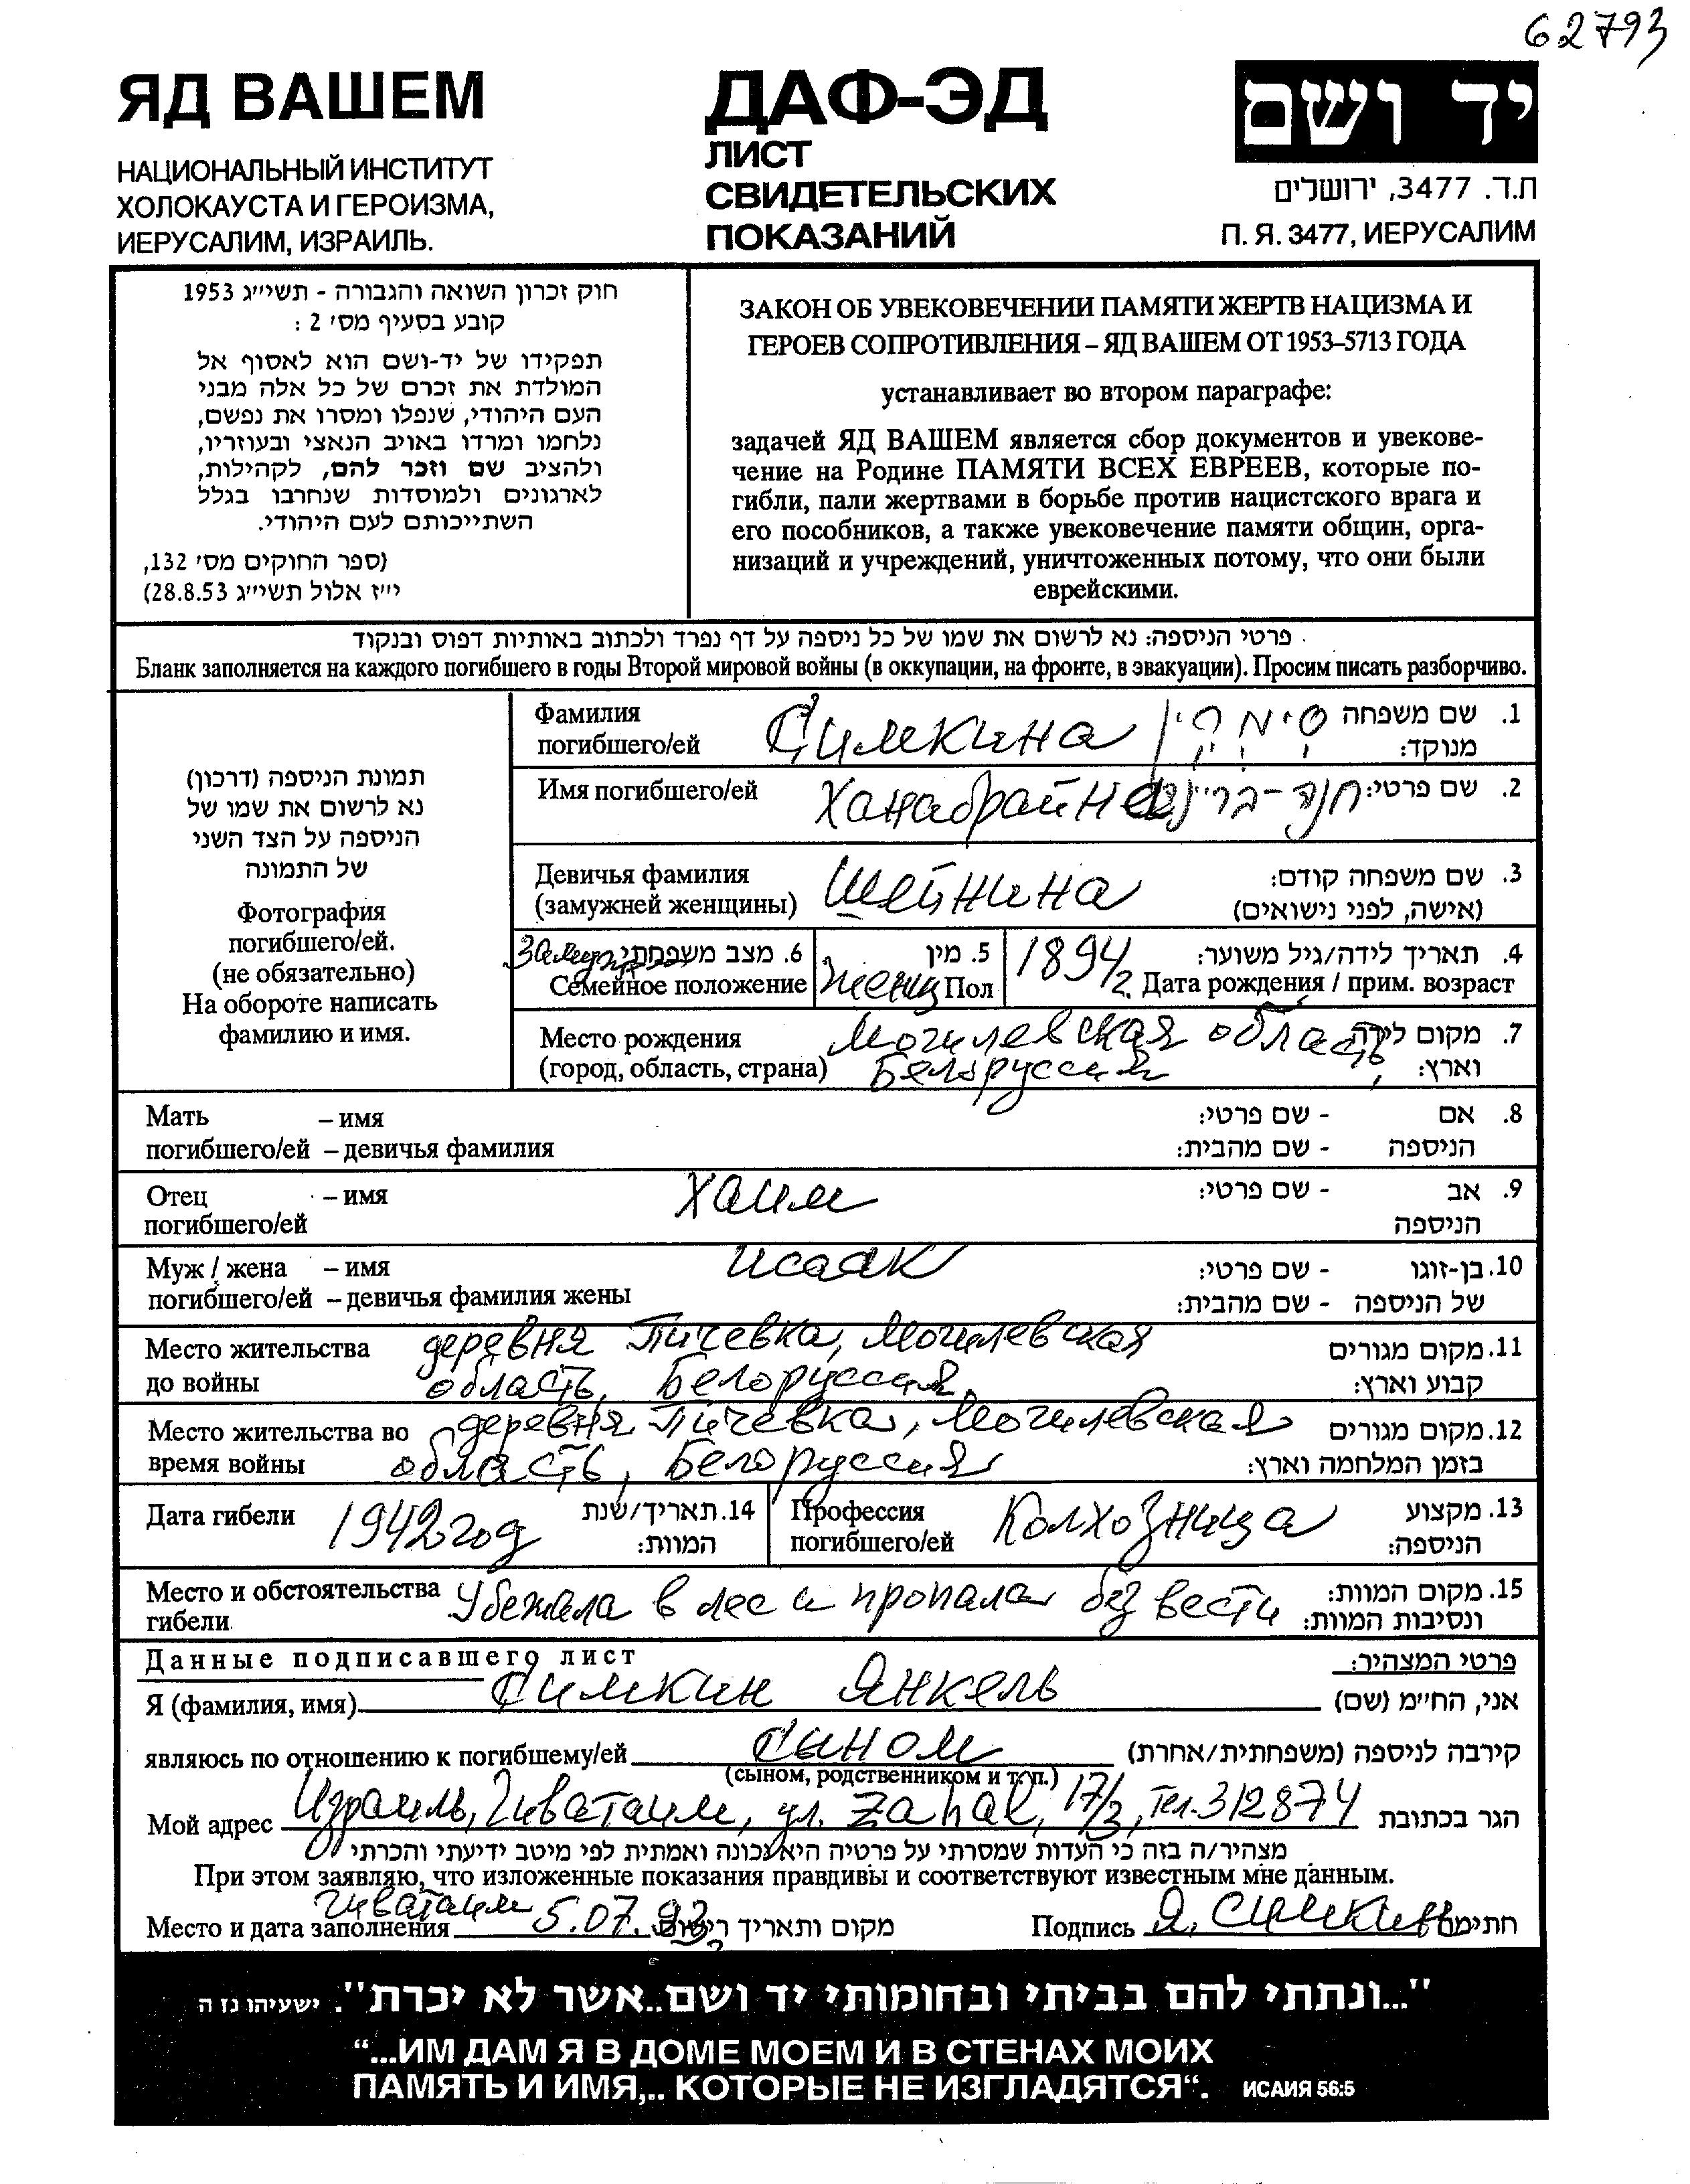 62793
ЯД ВАШЕМ
НАЦИОНАЛЬНЫЙ ИНСТИТУТ
ХОЛОКАУСТА И ГЕРОИЗМА,
ИЕРУСАЛИМ, ИЗРАИЛЬ.
ДАФ-ЭД
ЛИСТ
СВИДЕТЕЛЬСКИХ
ПОКАЗАНИЙ
יד ושם
ת.ד. 3477, ירושלים
П. Я. 3477, ИЕРУСАЛИМ
חוק זכרון השואה והגבורה - תשי״ג 1953
קובע בסעיף מס׳ 2 :
תפקידו של יד-ושם הוא לאסוף אל
המולדת את זכרם של כל אלה מבני
העם היהודי, שנפלו ומסרו את נפשם,
נלחמו ומרדו באויב הנאצי ובעוזריו,
ולהציב שם וזכר להם, לקהילות,
לארגונים ולמוסדות שנחרבו בגלל
השתייכותם לעם היהודי.
(ספר החוקים מס׳ 132,
י״ז אלול תשי״ג 28.8.53)
ЗАКОН ОБ УВЕКОВЕЧЕНИИ ПАМЯТИ ЖЕРТВ НАЦИЗМА И
ГЕРОЕВ СОПРОТИВЛЕНИЯ – ЯД ВАШЕМ ОТ 1953–5713 ГОДА
устанавливает во втором параграфе:
задачей ЯД ВАШЕМ является сбор документов и увекове-
чение на Родине ПАМЯТИ ВСЕХ ЕВРЕЕВ, которые по-
гибли, пали жертвами в борьбе против нацистского врага и
его пособников, а также увековечение памяти общин, орга-
низаций и учреждений, уничтоженных потому, что они были
еврейскими.
פרטי הניספה: נא לרשום את שמו של כל ניספה על דף נפרד ולכתוב באותיות דפוס ובנקוד
Бланк заполняется на каждого погибшего в годы Второй мировой войны (в оккупации, на фронте, в эвакуации). Просим писать разборчиво.
תמונת הניספה (דרכון)
נא לרשום את שמו של
הניספה על הצד השני
של התמונה
Фотография
погибшего/ей.
(не обязательно)
На обороте написать
фамилию и имя.
Фамилия Симкина סימקין 1. שם משפחה
погибшего/ей מנוקד:
Имя погибшего/ей Ханабрайна חנה-ברײנה 2. שם פרטי:
Девичья фамилия Шейнина 3. שם משפחה קודם:
(замужней женщины) (אישה, לפני נישואים)
Замужн 6. מצב משפחתי 5. מין 1894 4. תאריך לידה/גיל משוער:
Семейное положение женщ Пол г. Дата рождения / прим. возраст
Место рождения Могилевская область, 7. מקום לידה
(город, область, страна) Белоруссия וארץ:
Мать – имя 8. אם - שם פרטי:
погибшего/ей – девичья фамилия הניספה - שם מהבית:
Отец – имя Хаим 9. אב - שם פרטי:
погибшего/ей הניספה
Муж / жена – имя Исаак 10. בן-זוגו - שם פרטי:
погибшего/ей – девичья фамилия жены של הניספה - שם מהבית:
Место жительства деревня Пичевка, Могилевская 11. מקום מגורים
до войны область, Белоруссия, קבוע וארץ:
Место жительства во деревня Пичевка, Могилевская 12. מקום מגורים
время войны область, Белоруссия בזמן המלחמה וארץ:
Дата гибели 1942 год 14. תאריך/שנת Профессия Колхозница 13. מקצוע
המוות: погибшего/ей הניספה:
Место и обстоятельства Убежала в лес и пропала без вести 15. מקום המוות:
гибели ונסיבות המוות:
Данные подписавшего лист פרטי המצהיר:
Я (фамилия, имя) Симкин Янкель אני, החי״מ (שם)
являюсь по отношению к погибшему/ей сыном קירבה לניספה (משפחתית/אחרת)
(сыном, родственником и т. п.)
Мой адрес Израиль, Гиватаим, ул. Zahal, 17/3, Тел. 312874 הגר בכתובת
מצהיר/ה בזה כי העדות שמסרתי על פרטיה היא נכונה ואמתית לפי מיטב ידיעתי והכרתי
При этом заявляю, что изложенные показания правдивы и соответствуют известным мне данным.
Место и дата заполнения Гиватаим 5.07.93 מקום ותאריך רישום Подпись Я. Симкин חתימה
"...ונתתי להם בביתי ובחומותי יד ושם..אשר לא יכרת". ישעיהו נז ה
“...ИМ ДАМ Я В ДОМЕ МОЕМ И В СТЕНАХ МОИХ
ПАМЯТЬ И ИМЯ,.. КОТОРЫЕ НЕ ИЗГЛАДЯТСЯ“. ИСАИЯ 56:5